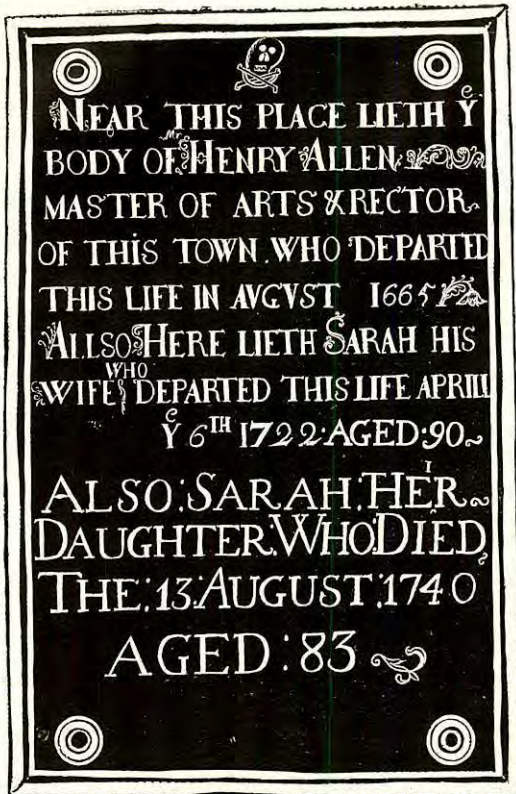 NEAR THIS PLACE LIETH Yᵉ
BODY OF Mr. HENRY ALLEN
MASTER OF ARTS & RECTOR
OF THIS TOWN WHO DEPARTED
THIS LIFE IN AVGVST 1665
ALLSO HERE LIETH SARAH HIS
WIFE WHO DEPARTED THIS LIFE APRILL
Yᵉ 6TH 1722 AGED 90
ALSO:SARAH:HER
DAUGHTER.WHO:DIED
THE:13:AUGUST:1740
AGED:83